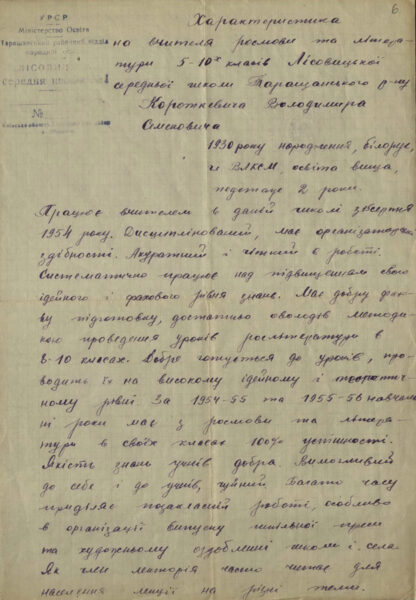 6
У Р С Р
Міністерство Освіти
Таращанський районний відділ
народної освіти
ЛІСОВИЦЬКА
середня школа
№
Характеристика
на вчителя росмови та літера-
тури 5-10х класів Лісовицької
середньої школи Таращанського р-ну
Короткевича Володимира
Семеновича
1930 року народження, білорус,
чл ВЛКСМ, освіта вища,
педстаж 2 роки.
Працює вчителем в даній школі з серпня
1954 року. Дисциплінований, має організаторські
здібності. Акуратний і чіткий в роботі.
Систематично працює над підвищенням свого
ідейного і фахового рівня знань. Має добру фахо-
ву підготовку, достатньо оволодів методи-
кою проведення уроків рослітератури в
8-10 класах. Добре готується до уроків, про-
водить їх на високому ідейному і теоретич-
ному рівні За 1954-55 та 1955-56 навчаль
ні роки має з росмови та літера-
тури в своїх класах 100% успішності.
Якість знань учнів добра. Вимогливий
до себе і до учнів, чуйний Багато часу
приділяє позакласній роботі, особливо
в організації випуску шкільної преси
та художньому оздобленні школи і села.
Як член лекторія часто читає для
населення лекції на різні теми.